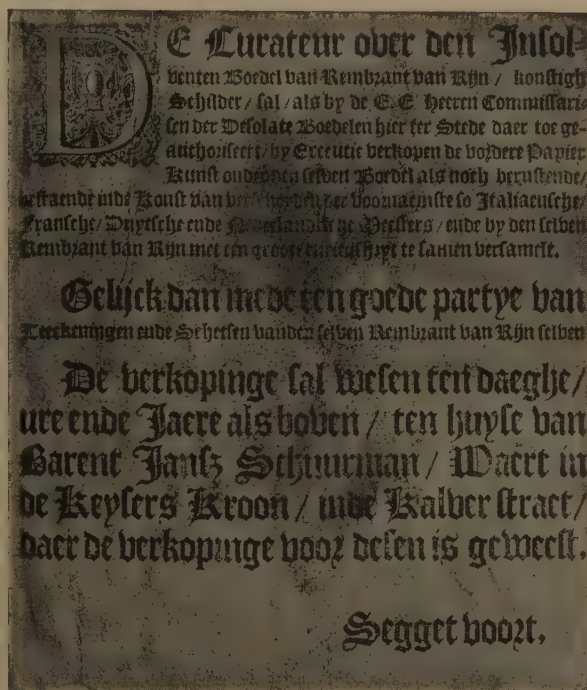 DE Curateur over den Insol-
venten Boedel van Rembrant van Rijn / konstigh
Schilder / sal / als by de E. E. Heeren Commissari-
sen der Desolate Boedelen hier ter Stede daer toe ge-
authoriseert / by Executie verkopen de vordere Papier
Kunst onder den selven Boedel als noch berustende /
bestaende inde Konst van verscheyden der voornaemste so Italiaensche /
Fransche / Duytsche ende Nederlandtsche Meesters / ende by den selven
Rembrant van Rijn met een groote curieusheyt te samen versamelt.
Gelijck dan mede een goede partye van
Teeckeningen ende Schetsen vanden selven Rembrant van Rijn selven
De verkopinge sal wesen ten daeghe /
ure ende Jaere als boven / ten huyse van
Barent Jansz Schuurman / Waert in
de Keysers Kroon / inde Kalver straet /
daer de verkopinge voor desen is geweest.
Segget voort.